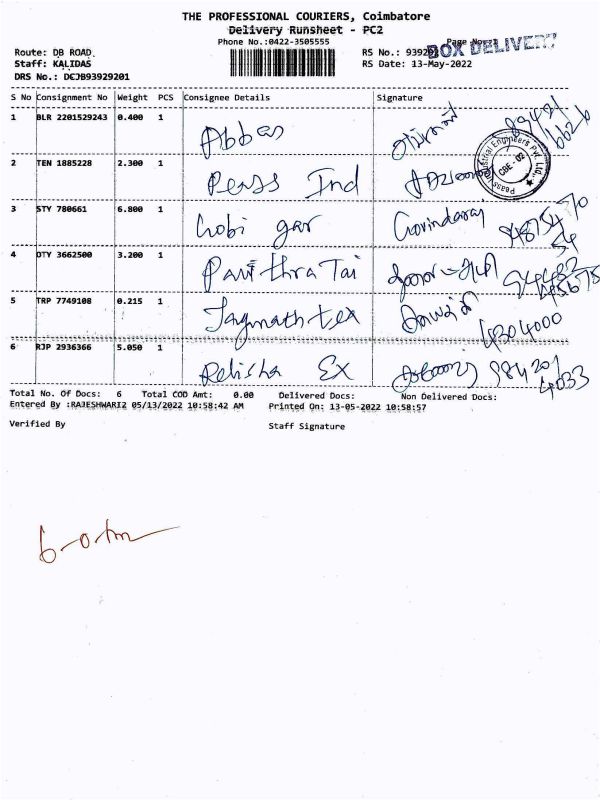 THE PROFESSIONAL COURIERS, Coimbatore
Delivery Runsheet - PC2
Phone No.:0422-3505555
Page No.:1
BOX DELIVERY
Route: DB ROAD
RS No.: 9392
Staff: KALIDAS
RS Date: 13-May-2022
DRS No.: DCJB93929201
S No Consignment No Weight PCS Consignee Details Signature
1 BLR 2201529243 0.400 1 Abbas
2 TEN 1885228 2.300 1 Peass Ind
Peass Industrial Engineers Pvt. Ltd., CBE - 02
3 STY 780661 6.800 1 Gobi gar Govindaraj
4 DTY 3662500 3.200 1 Pavithra Tai
5 TRP 7749108 0.215 1 Jagnath tex 4204000
6 RJP 2936366 5.050 1 Relisha Ex 984201 4033
Total No. Of Docs: 6 Total COD Amt: 0.00 Delivered Docs: Non Delivered Docs:
Entered By :RAJESHWARI2 05/13/2022 10:58:42 AM Printed On: 13-05-2022 10:58:57
Verified By Staff Signature